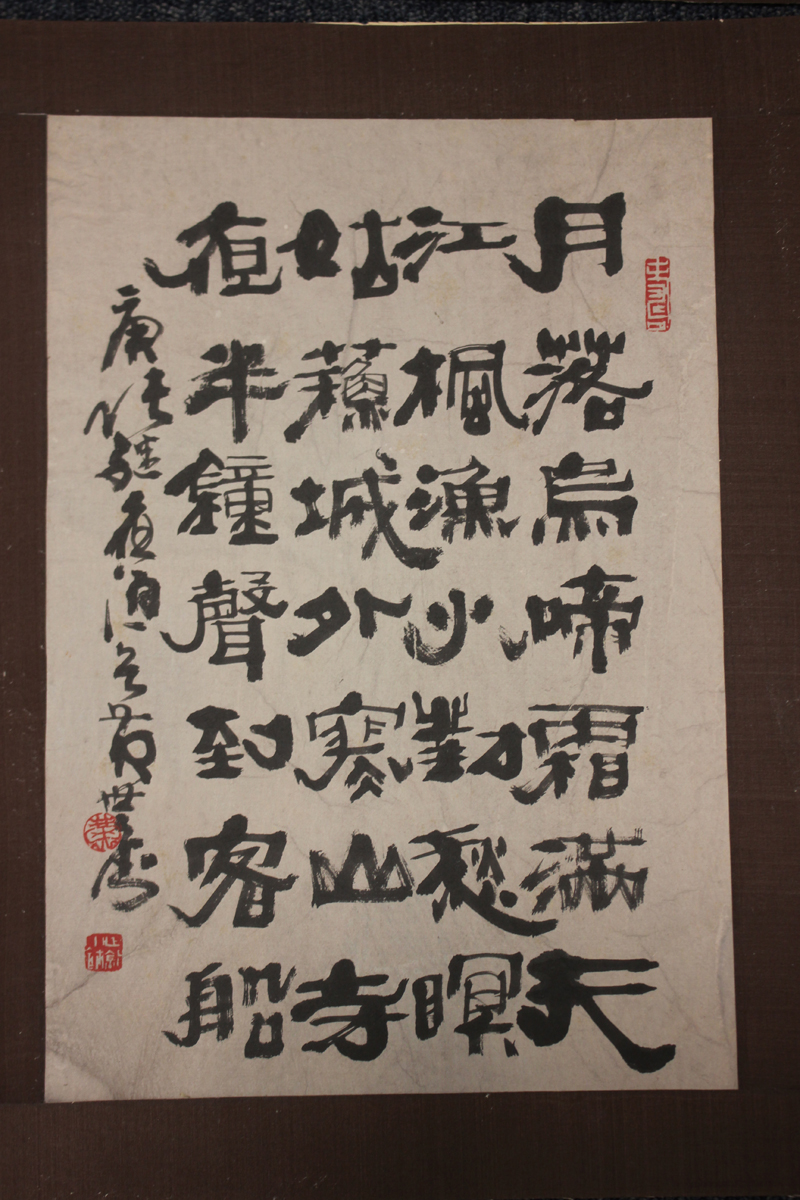 月落烏啼霜滿天
江楓漁火對愁瞑
姑蘓城外寒山寺
夜半鐘聲到客船
唐張繼夜泊